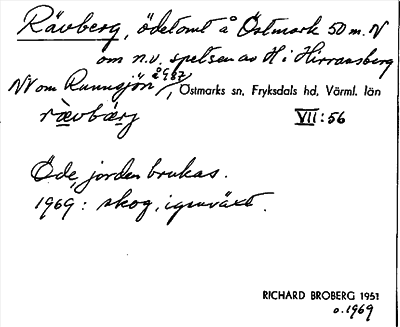 Rävberg, ödetomt å Östmark 50 m. N
om n.v. spetsen av H i Hirraasberg
NV om Rannsjön å 987, Östmarks sn, Fryksdals hd, Värml. län
rävbärj VII:56
Öde, jorden brukas.
1969: skog, igenväxt.
RICHARD BROBERG 1951
o. 1969